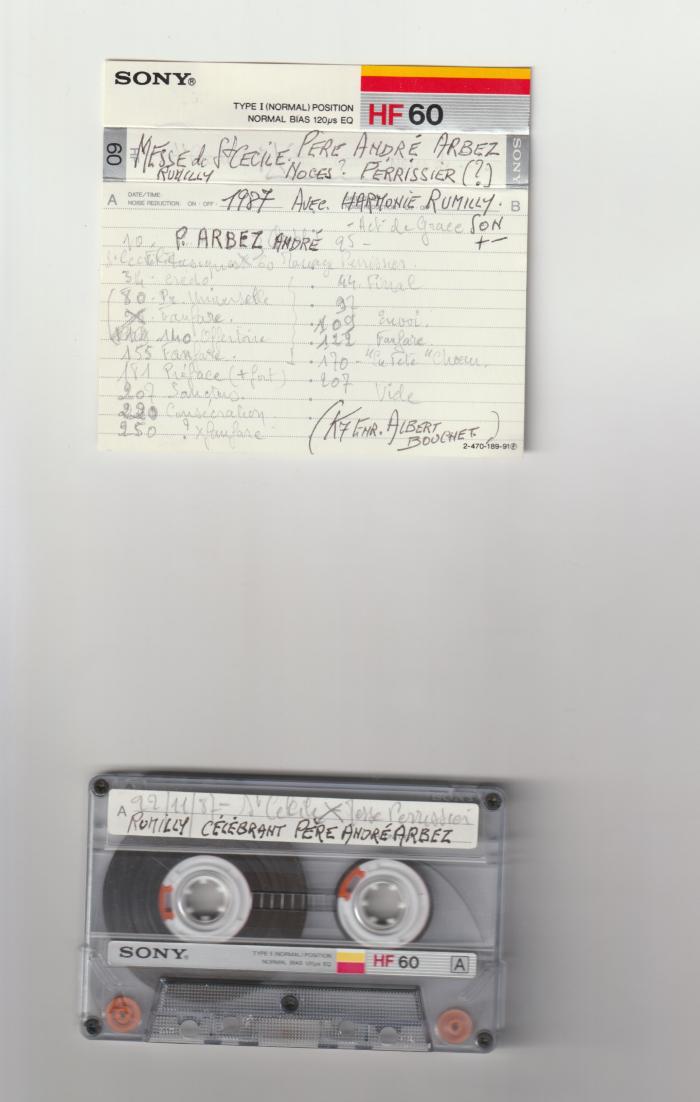 SONY®
TYPE I (NORMAL) POSITION
NORMAL BIAS 120µs EQ
HF 60
60
MESSE de St CECILE. PÈRE ANDRÉ ARBEZ
RUMILLY NOCES? PERRISSIER (?)
SONY
A DATE/TIME: 1987 AVEC HARMONIE RUMILLY. B
NOISE REDUCTION ON · OFF ·
- Act. de Grace SON
+ -
10 P. ARBEZ ANDRÉ 95 -
Mariage Perrissier
34 - Credo 44 Final
80 - Pr. Universelle 92
Fanfare. 109 Envoi.
140 Offertoire 122 Fanfare.
155 Fanfare. 170 - "En Fête" Chœur.
181 Préface (+ fort) 207
207 Sanctus. Vide
220 Consécration
250 ? fanfare
(K7 ENR. ALBERT
BOUCHET.)
2-470-189-91
A 22/11/87 - St Cécile X Messe Perrissier
RUMILLY CÉLÈBRANT PÈRE ANDRÉ ARBEZ
SONY®
TYPE I (NORMAL) POSITION
NORMAL BIAS 120µs EQ
HF 60
A